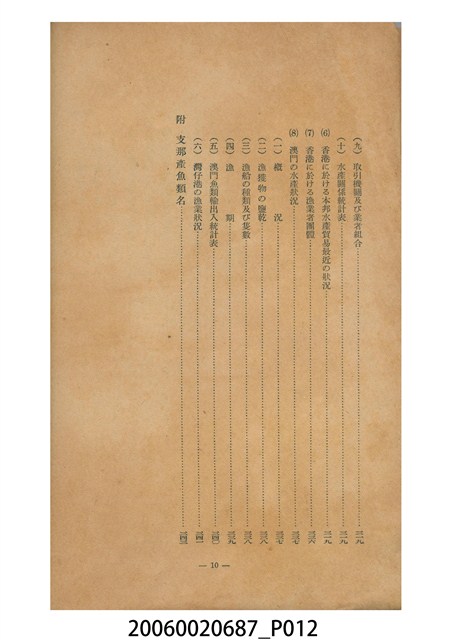 (九) 取引機關及び業者組合……三一九
(十) 水產關係統計表……三一九
(6) 香港に於ける本邦水產貿易最近の狀況……三一九
(7) 香港に於ける漁業者團體……三三六
(8) 澳門の水產狀況……三三七
(一) 槪況……三三七
(二) 漁獲物の鹽乾……三三八
(三) 漁船の種類及び隻數……三三八
(四) 漁期……三三九
(五) 澳門魚類輸出入統計表……三四〇
(六) 灣仔港の漁業狀況……三四一
附 支那產魚類名……三四三
— 10 —
20060020687_P012